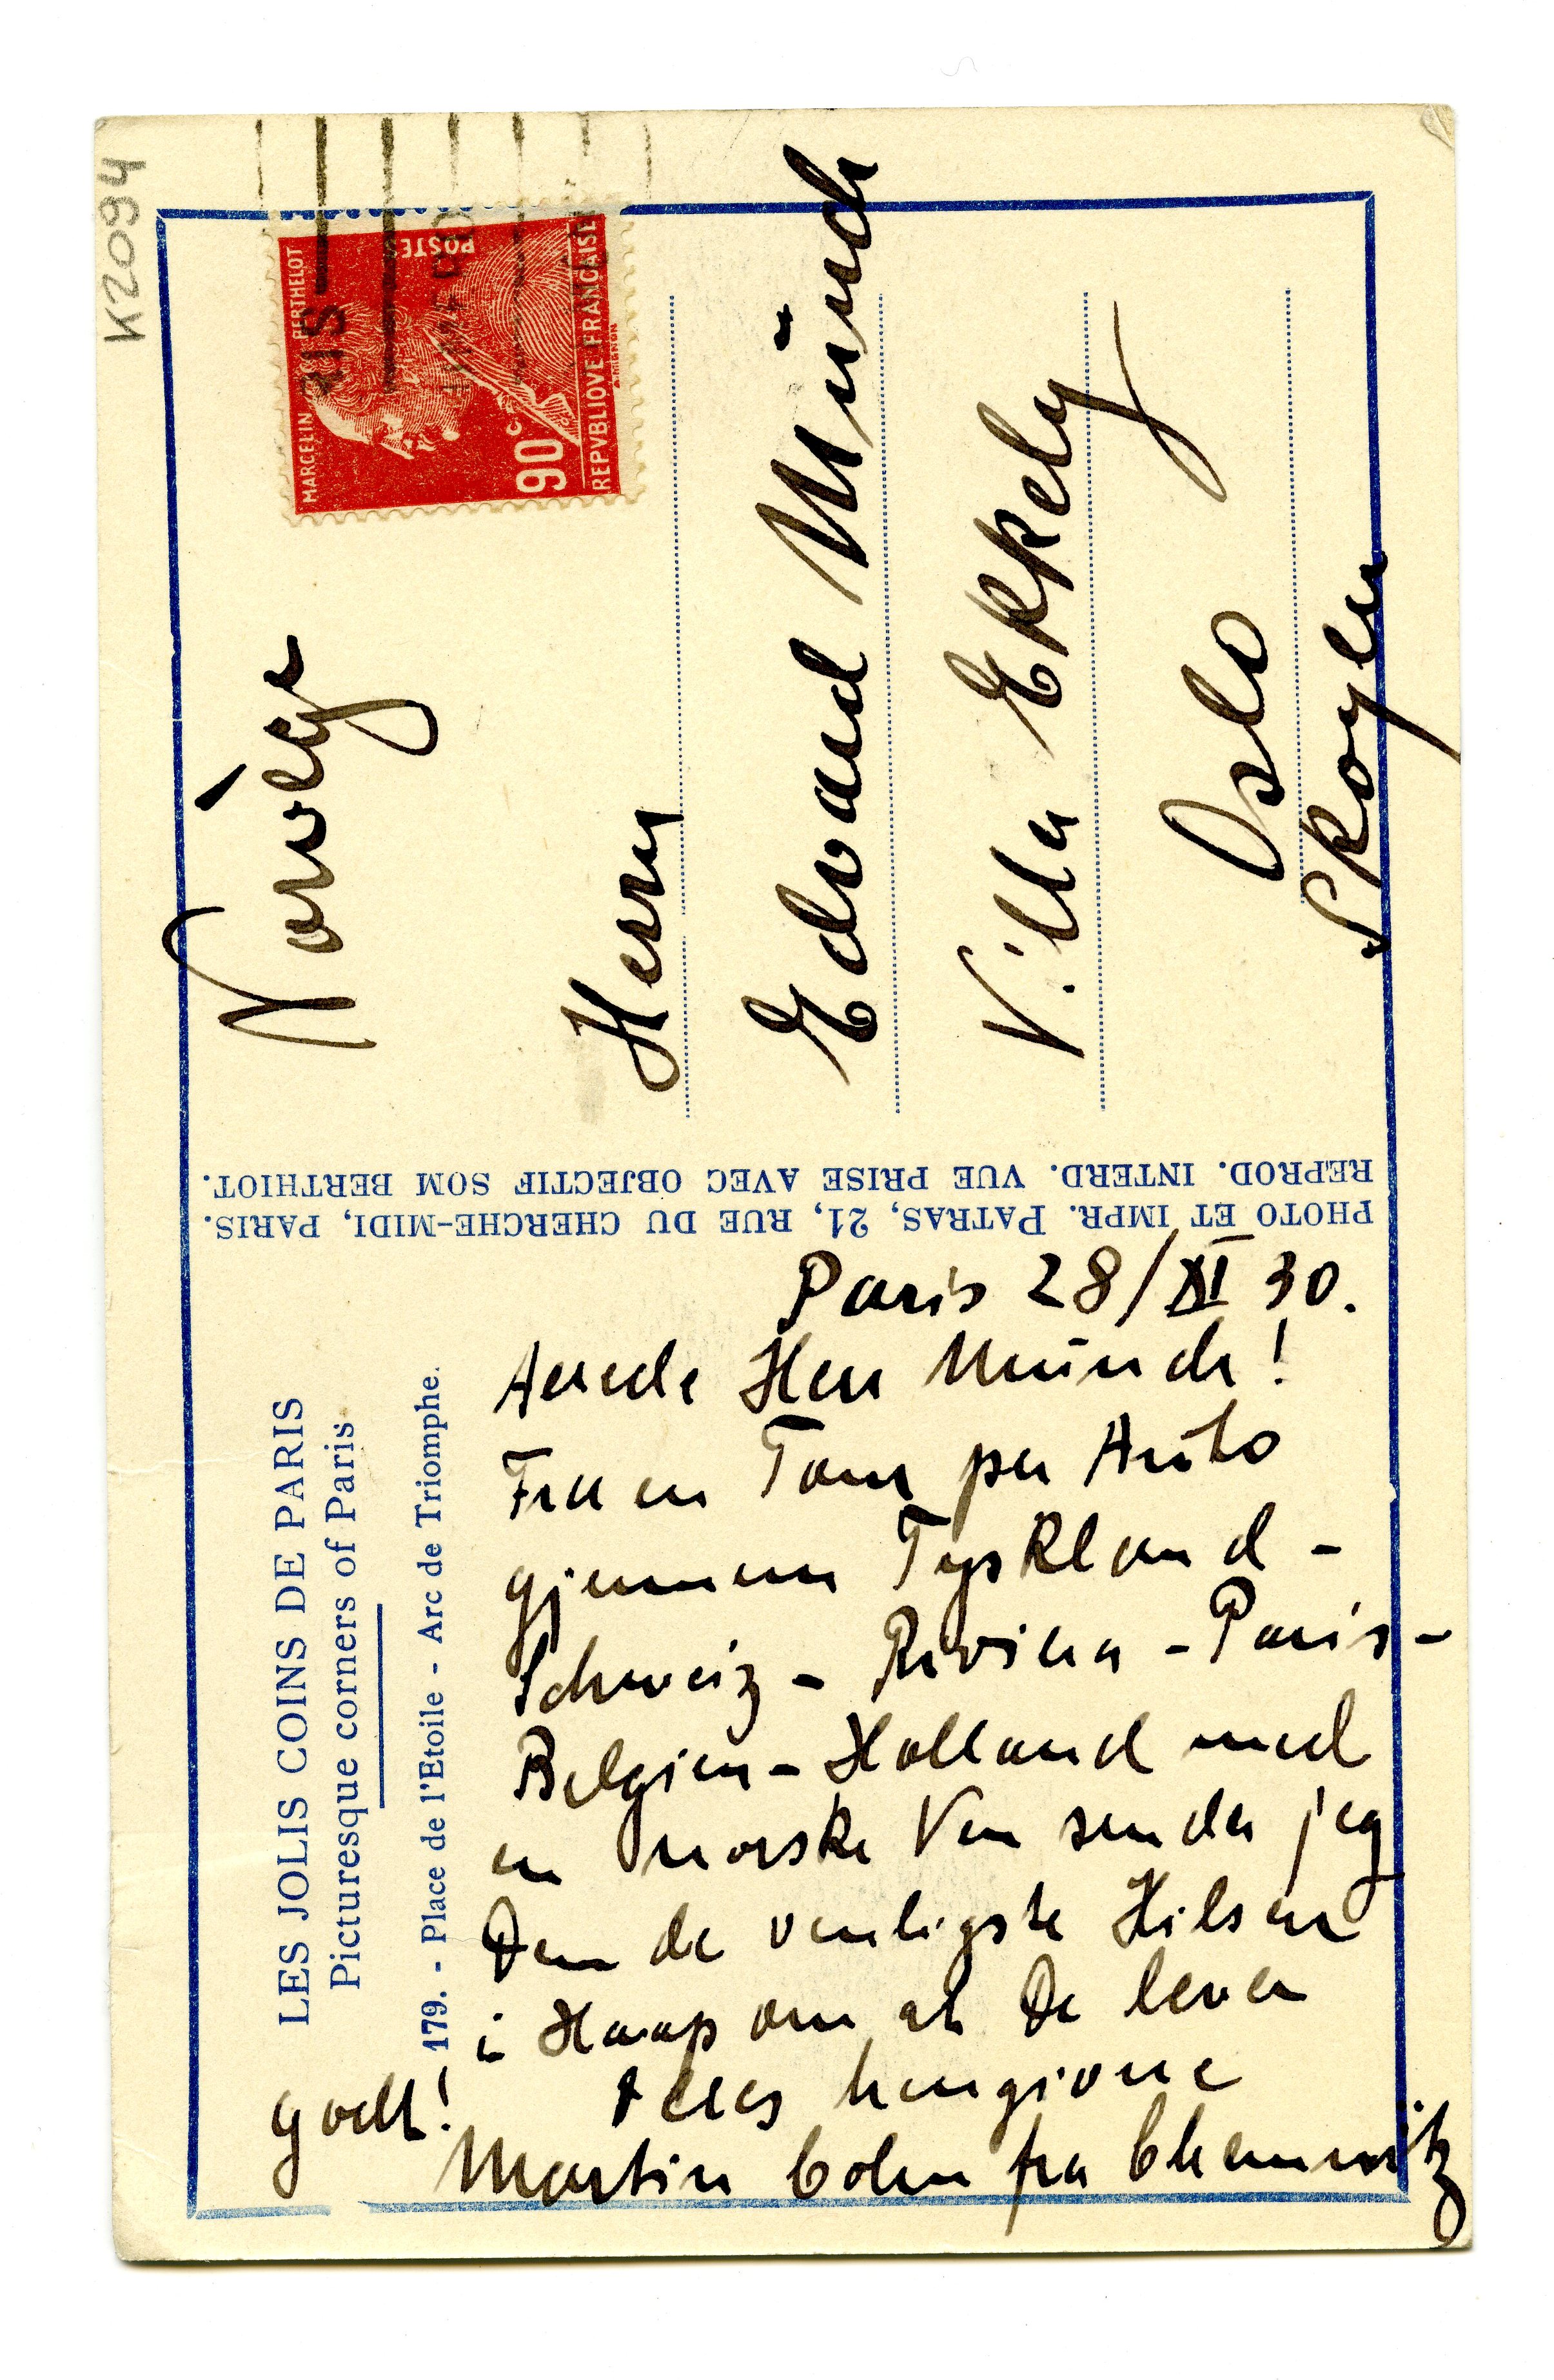 K2094
MARCELIN BERTHELOT
POSTES
90c
REPVBLIQVE FRANÇAISE
Norvège
Herrn
Edvard Münch
Villa Ekkely
Oslo
Skoyen
REPROD. INTERD. VUE PRISE AVEC OBJECTIF SOM BERTHIOT.
PHOTO ET IMPR. PATRAS, 21, RUE DU CHERCHE-MIDI, PARIS.
LES JOLIS COINS DE PARIS
Picturesque corners of Paris
179. - Place de l'Etoile - Arc de Triomphe.
Paris 28/XI 30.
Aerede Herr Münch!
Fra en Tour per Auto
gjennem Tyskland -
Schweiz - Riviera - Paris -
Belgien - Holland med
en norske Ven sender jeg
Dem de venligste Hilsen
i Haap om at De lever
godt! Deres hengivne
Martin Cohn fra Chemnitz